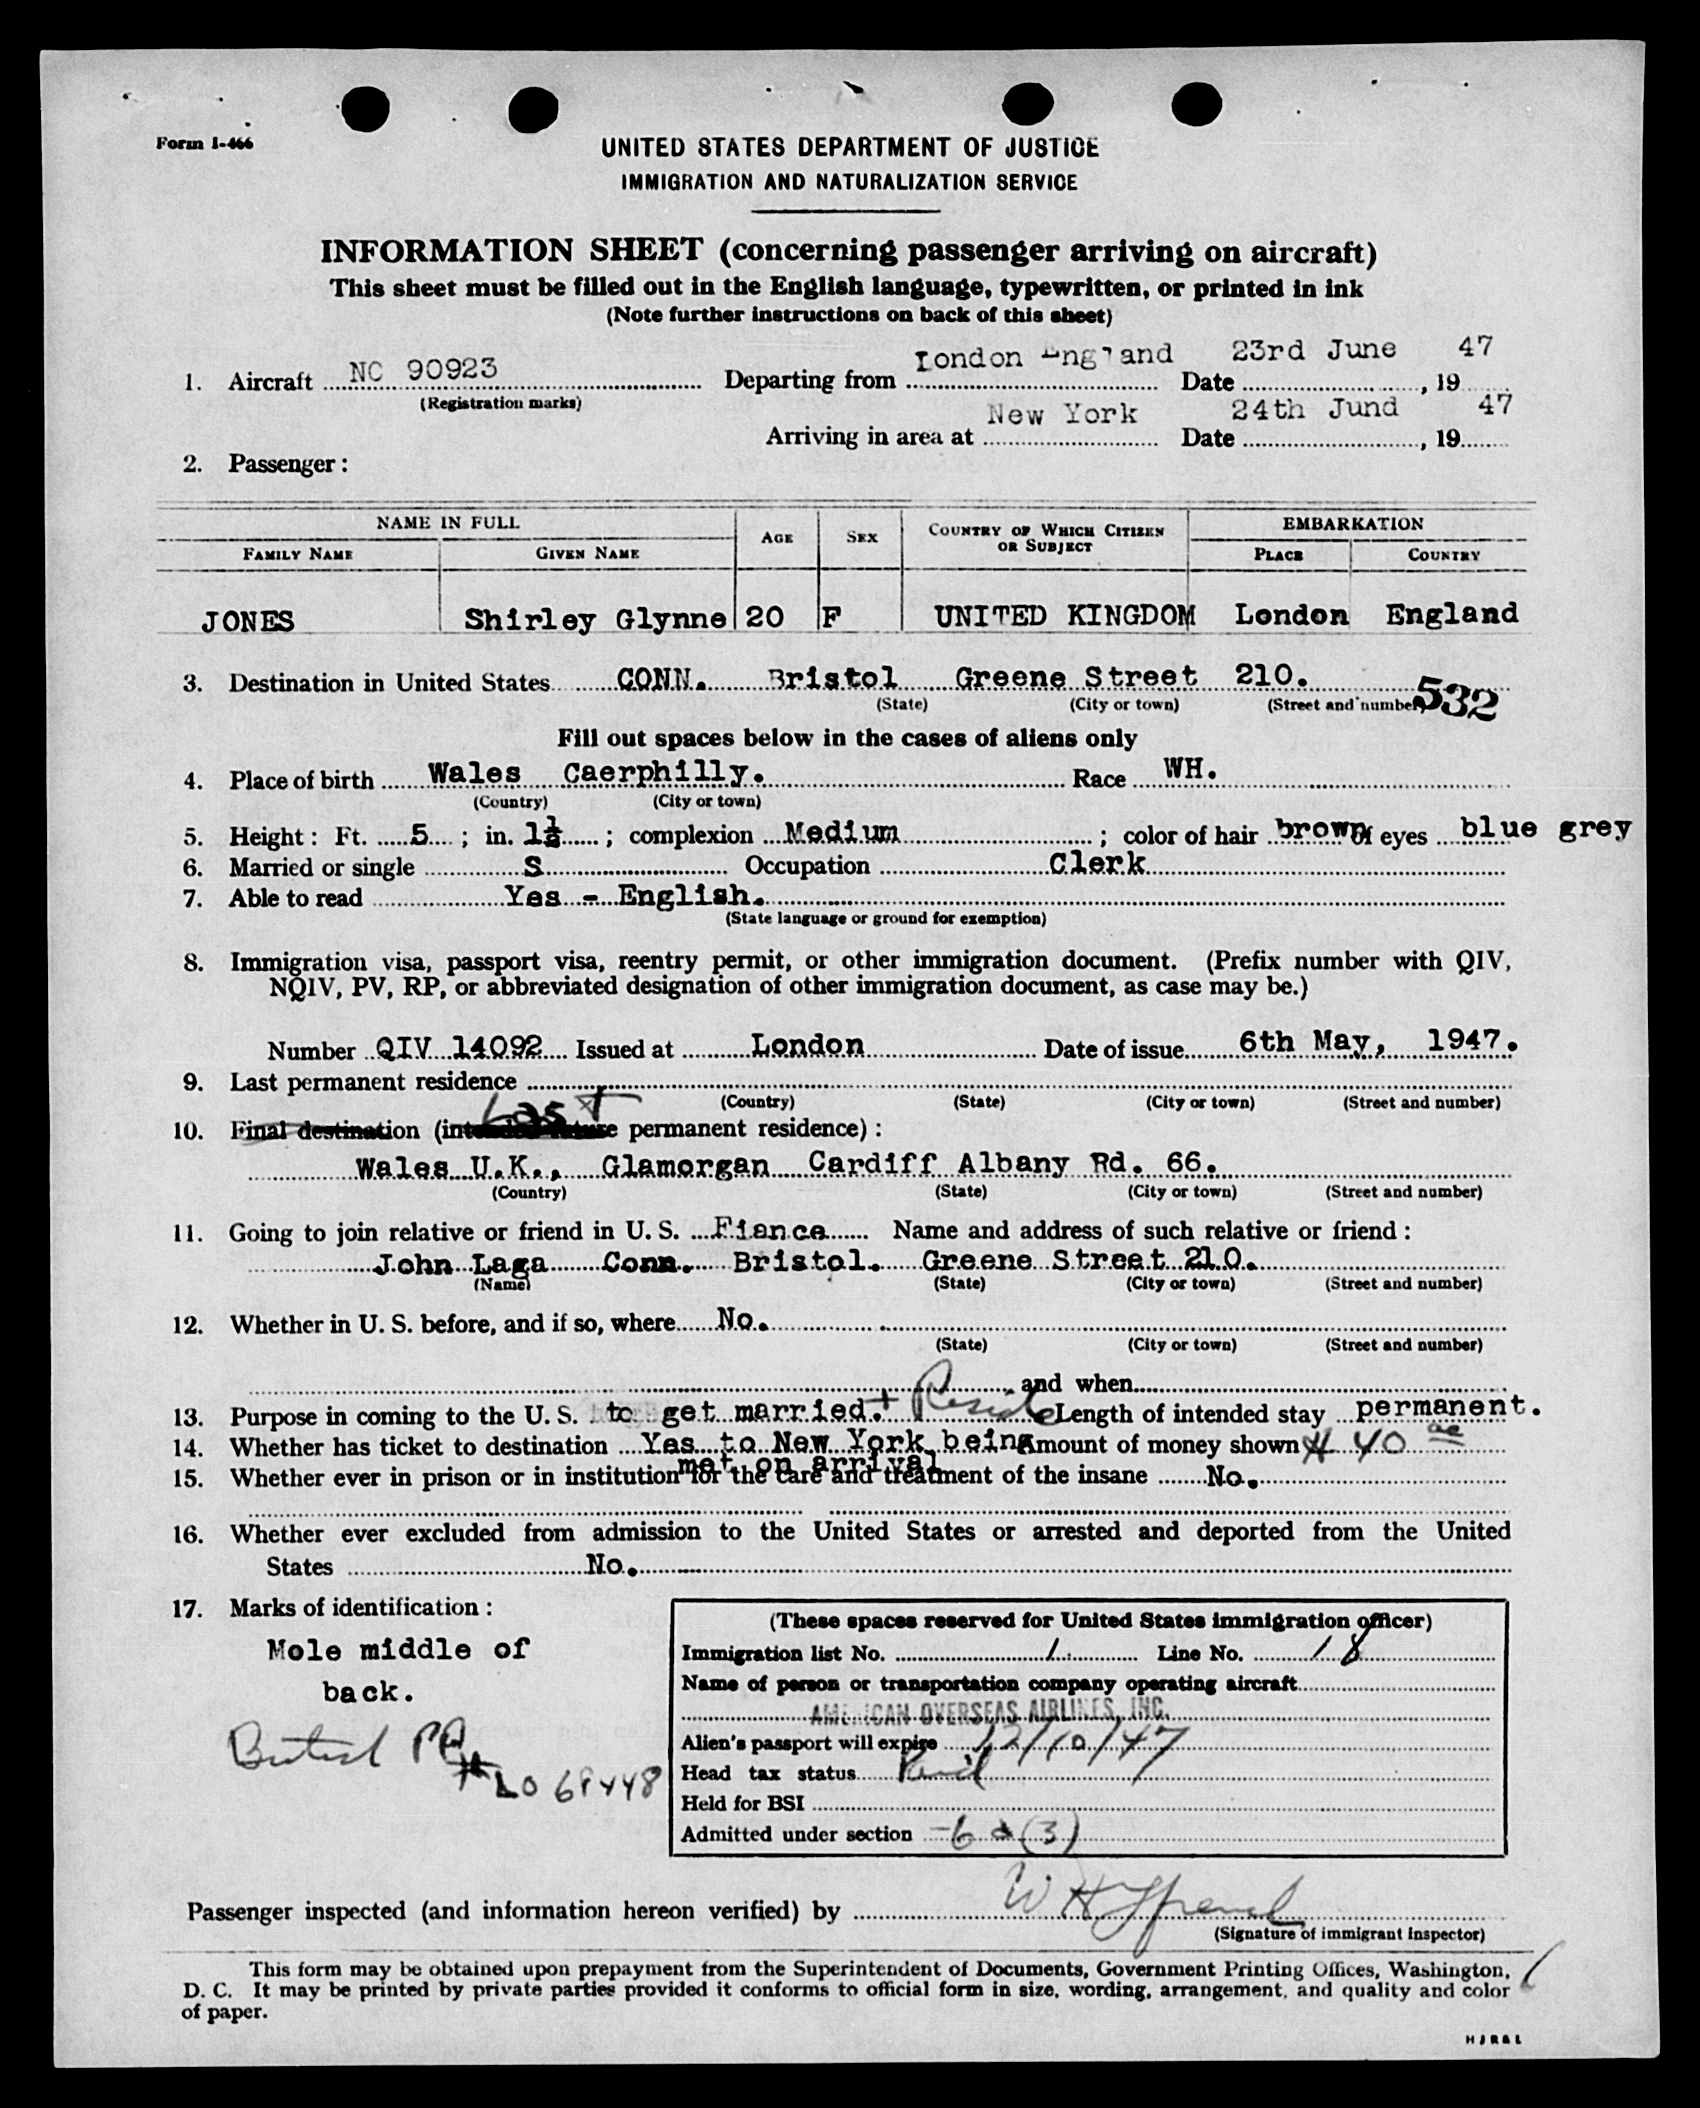 Form I-466
UNITED STATES DEPARTMENT OF JUSTICE
IMMIGRATION AND NATURALIZATION SERVICE
INFORMATION SHEET (concerning passenger arriving on aircraft)
This sheet must be filled out in the English language, typewritten, or printed in ink
(Note further instructions on back of this sheet)
1. Aircraft NC 90923 Departing from London England Date 23rd June, 19 47
(Registration marks)
Arriving in area at New York Date 24th Jund, 19 47
2. Passenger:
NAME IN FULL AGE SEX COUNTRY OF WHICH CITIZEN OR SUBJECT EMBARKATION
FAMILY NAME GIVEN NAME PLACE COUNTRY
JONES Shirley Glynne 20 F UNITED KINGDOM London England
3. Destination in United States CONN. Bristol Greene Street 210.
(State) (City or town) (Street and number) 532
Fill out spaces below in the cases of aliens only
4. Place of birth Wales Caerphilly. Race WH.
(Country) (City or town)
5. Height: Ft. 5; in. 1½; complexion Medium; color of hair brown of eyes blue grey
6. Married or single S Occupation Clerk
7. Able to read Yes - English.
(State language or ground for exemption)
8. Immigration visa, passport visa, reentry permit, or other immigration document. (Prefix number with QIV,
NQIV, PV, RP, or abbreviated designation of other immigration document, as case may be.)
Number QIV 14092 Issued at London Date of issue 6th May, 1947.
9. Last permanent residence
(Country) (State) (City or town) (Street and number)
Last
10. Final destination (intended future permanent residence):
Wales U.K., Glamorgan Cardiff Albany Rd. 66.
(Country) (State) (City or town) (Street and number)
11. Going to join relative or friend in U. S. Fiance Name and address of such relative or friend:
John Laga Conn. Bristol. Greene Street 210.
(Name) (State) (City or town) (Street and number)
12. Whether in U. S. before, and if so, where No.
(State) (City or town) (Street and number)
and when
13. Purpose in coming to the U. S. to get married. + Reside Length of intended stay permanent.
14. Whether has ticket to destination Yes to New York being Amount of money shown $ 40 00
met on arrival
15. Whether ever in prison or in institution for the care and treatment of the insane No.
16. Whether ever excluded from admission to the United States or arrested and deported from the United
States No.
17. Marks of identification:
Mole middle of
back.
British PP
# LO 68448
(These spaces reserved for United States immigration officer)
Immigration list No. 1 Line No. 18
Name of person or transportation company operating aircraft
AMERICAN OVERSEAS AIRLINES, INC.
Alien's passport will expire 12/10/47
Head tax status Paid
Held for BSI
Admitted under section 6 a (3)
Passenger inspected (and information hereon verified) by
(Signature of immigrant inspector)
This form may be obtained upon prepayment from the Superintendent of Documents, Government Printing Offices, Washington,
D. C. It may be printed by private parties provided it conforms to official form in size, wording, arrangement, and quality and color
of paper.